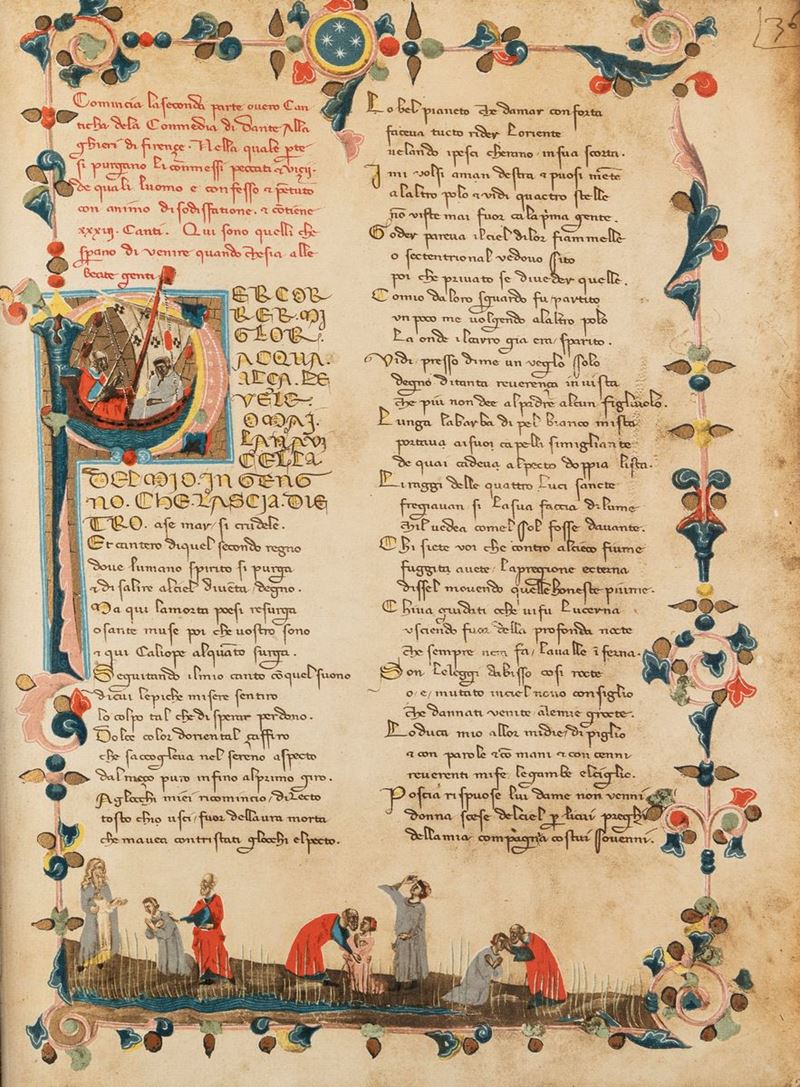 Comincia la seconda parte overo Can
ticha dela Commedia di Dante Alla
ghieri di firençe. Nella quale p̱te
si purgano li commessi peccati ⁊ viçij.
de quali luomo e confesso ⁊ pentuto
con animo di sodisfatione. ⁊ cōtiene
xxxiij. Canti. Qui sono quelli che
sperano di venire quando chesia alle
beate genti
PER COR
RER MI
GLOR.
ACQUA.
ALÇA. LE
VELE.
OMAI.
LA NAVI
CELLA.
DEL MIO. INGENG
NO. CHE. LASCIA. DIE
TRO. ase mar si crudele.
Et cantero di quel secondo regno
dove lumano spirito si purga
⁊ di salire alciel divēta degno.
Ma qui lamorta poesi resurga
o sante muse poi che vostro sono
⁊ qui Caliope alquāto surga.
Seguitando ilmio canto cō quel suono
dicui lepiche misere sentiro
lo colpo tal che di sperar perdono.
Dolce color doriental çaffiro
che saccogleva nel sereno aspecto
dal meço puro infino alprimo giro.
Aglocchi miei ricomincio directo
tosto chio usci fuor dellaura morta
che mavea contristati glocchi elpecto.
Lo bel pianeto che damar conforta
faceva tucto rider loriente
velando ipesci cherano insua scorta.
I mi volsi aman destra ⁊ puosi mēte
alaltro polo ⁊ vidi quactro stelle
nō viste mai fuor cala pͥma gente.
Goder pareva ilciel dilor fiammelle
o sectentrional vedovo sito
poi che privato se diveder quelle.
Comio daloro sguardo fu partito
un poco me volgendo alaltro polo
La onde ilcarro gia era sparito.
Vidi presso dime un veglo solo
degno ditanta reverença in vista
che piu non dee alpadre alcun figliuolo.
Lunga labarba di pel bianco mista
portava aisuoi capelli simigliante
de quai cadeva alpecto doppia lista.
Li raggi delle quattro luci sancte
fregiavan si lasua faccia dilume
chil vedea comel sol fosse davante.
Chi siete voi che contro alcieco fiume
fuggita avete lapregione ecterna
dissel movendo quelle honeste piume.
Chi va guidati o che vi fu lucerna
uscendo fuor della profonda nocte
che sempre nera fa lavalle īferna.
Son leleggi dabisso cosi rocte
o e mutato inciel novo consiglio
che dannati venite alemie grocte.
Lo duca mio allor midie di piglio
⁊ con parole ⁊ cō mani ⁊ con cenni
reverenti mife legambe elciglio.
Poscia rispuose lui dame non venni
donna scese delciel p̱ licui preghi
della mia compagna costui sovenni.